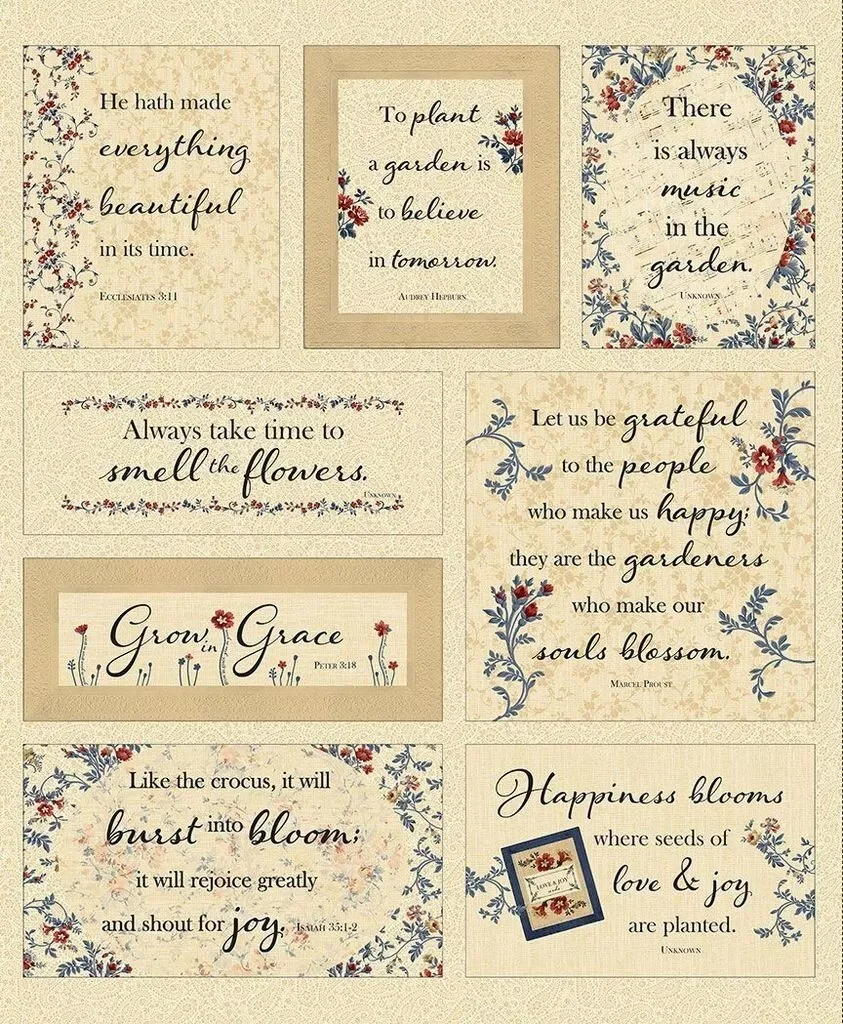 He hath made
everything
beautiful
in its time.
Ecclesiates 3:11
To plant
a garden is
to believe
in tomorrow.
Audrey Hepburn
There
is always
music
in the
garden.
Unknown
Always take time to
smell the flowers.
Unknown
Let us be grateful
to the people
who make us happy;
they are the gardeners
who make our
souls blossom.
Marcel Proust
Grow in Grace
Peter 3:18
Like the crocus, it will
burst into bloom;
it will rejoice greatly
and shout for joy. Isaiah 35:1-2
Happiness blooms
where seeds of
love & joy
are planted.
Unknown
LOVE & JOY